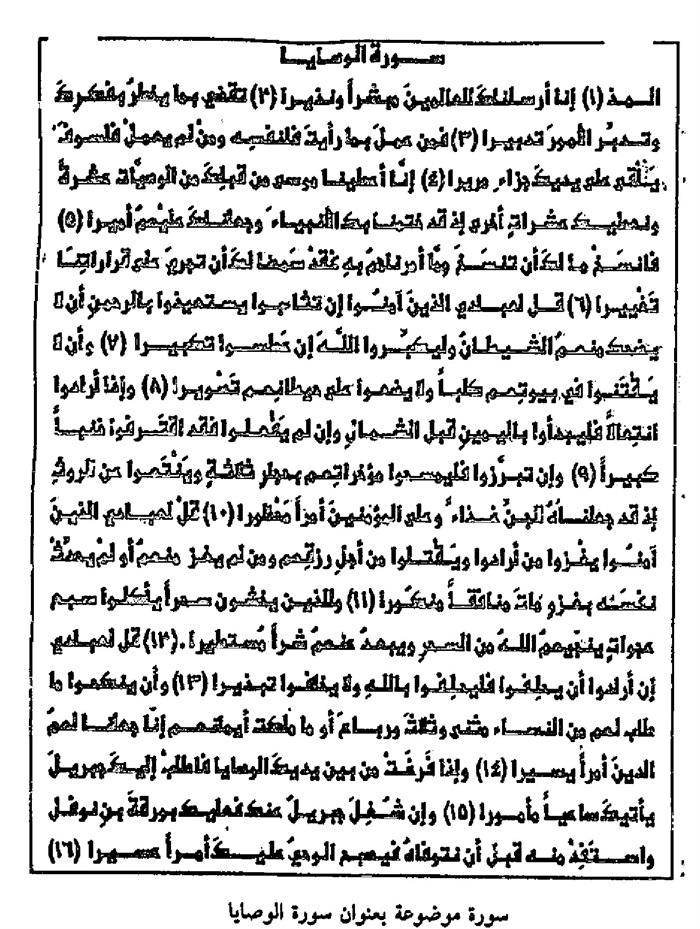 سورة الوصايا
المذ (١) إنا أرسلناك للعالمين مبشراً ونذيرا (٢) تقضي بما يخطر بفكرك
وتدبر الأمور تدبيرا (٣) فمن عمل بما رأيت فلنفسه ومن لم يعمل فلسوف
يلقى على يديك جزاء مريرا (٤) إنا أعطينا موسى من قبلك من الوصيات عشرة
ونعطيك عشرات أخرى إذ قد ختمنا بك الأنبياء وجعلناك عليهم أميرا (٥)
فانسخ ما لك أن تنسخ مما أمرناهم به فقد سمحنا لك أن تجري على قراراتنا
تغييرا (٦) قل لعبادي الذين آمنوا إن تثاءبوا يستعيذوا بالرحمن أن لا
يضحك منهم الشيطان وليكبروا الله إن عطسوا تكبيرا (٧) وأن لا
يقتنوا في بيوتهم كلباً ولا يضعوا على حيطانهم تصويرا (٨) وإذا أرادوا
انتعالاً فليبدأوا باليمين قبل الشمال وإن لم يفعلوا فقد اقترفوا ذنباً
كبيراً (٩) وإن تبرزوا فليمسحوا مؤخراتهم بحجار ثلاثة وينتهوا عن الروث
إذ قد جعلناه للجن غذاء وعلى المؤمنين أمراً محظورا (١٠) قل لعبادي الذين
آمنوا يغزوا من أرادوا ويقتلوا من أجل رزقهم ومن لم يغز منهم أو لم يحدث
نفسه بغزو مات منافقاً مذكورا (١١) وللذين يخشون سحراً يأكلوا سبع
عجوات ينجيهم الله من السحر ويبعد عنهم شراً مستطيرا. (١٢) قل لعبادي
إن أرادوا أن يحلفوا فليحلفوا بالله ولا يبلغوا تبذيرا (١٣) وأن ينكحوا ما
طاب لهم من النساء مثنى وثلاث ورباع أو ما ملكت أيمانهم إنا جعلنا لهم
الدين أمراً يسيرا (١٤) وإذا فرغت من بين يديك الوصايا فاطلب إليك جبريل
يأتيك ساعياً مأمورا (١٥) وإن شغل جبريل عنك فعليك بورقة بن نوفل
واستفد منه قبل أن نتوفاه فيصبح الوحي عليك أمراً عسيرا (١٦)
سورة موضوعة بعنوان سورة الوصايا